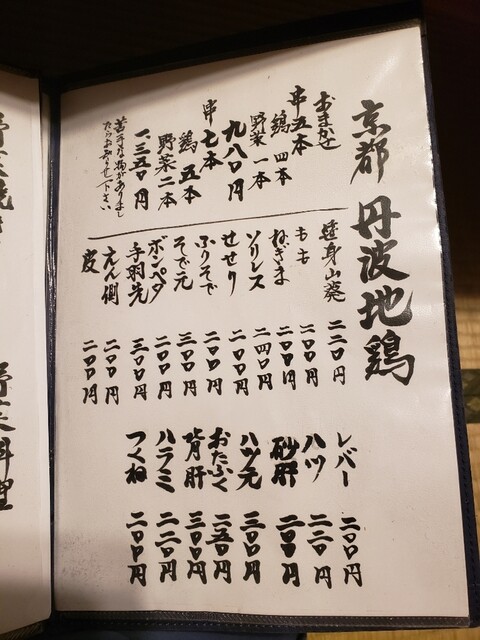 京都 丹波地鶏
おまかせ
串五本
鶏 四本
野菜 一本
九八〇円
串七本
鶏 五本
野菜 二本
一三五〇円
苦手な物がありまし
たらお知らせ下さい
笹身山葵 二二〇円
もも 二〇〇円
ねぎま 二〇〇円
ソリレス 二四〇円
せせり 二〇〇円
ふりそで 二〇〇円
そで元 三〇〇円
ボンペタ 二〇〇円
手羽先 三〇〇円
えん側 二〇〇円
皮 二〇〇円
レバー 二〇〇円
ハツ 二二〇円
砂肝 二〇〇円
ハツ元 三〇〇円
おたふく 二五〇円
背肝 三〇〇円
ハラミ 二二〇円
つくね 二〇〇円
料理